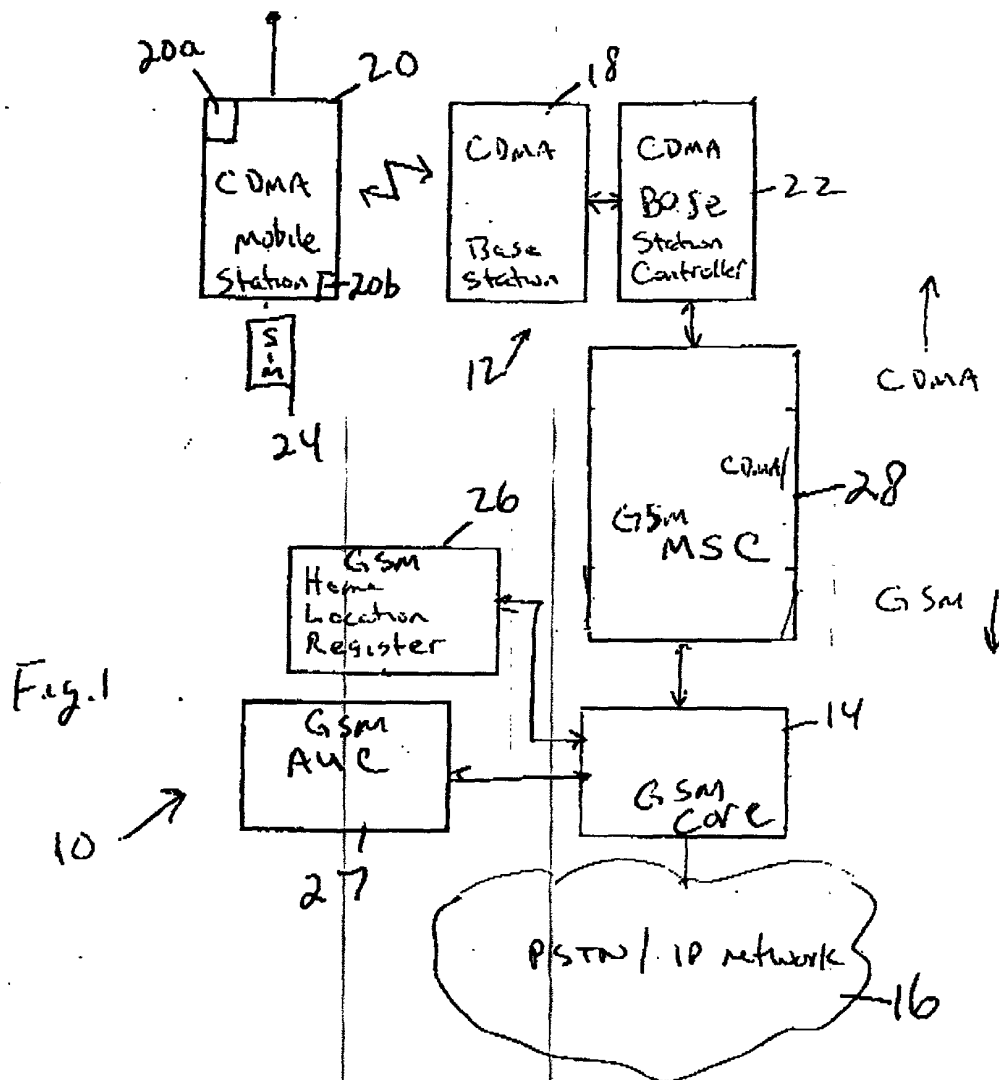 20a
20
18
CDMA
Mobile
Station
20b
SIM
24
CDMA
Base
Station
CDMA
Base
Station
Controller
22
12
CDMA
CDMA/
GSM
MSC
28
26
GSM
Home
Location
Register
GSM
Fig. 1
GSM
AUC
14
GSM
Core
10
27
PSTN/IP network
16